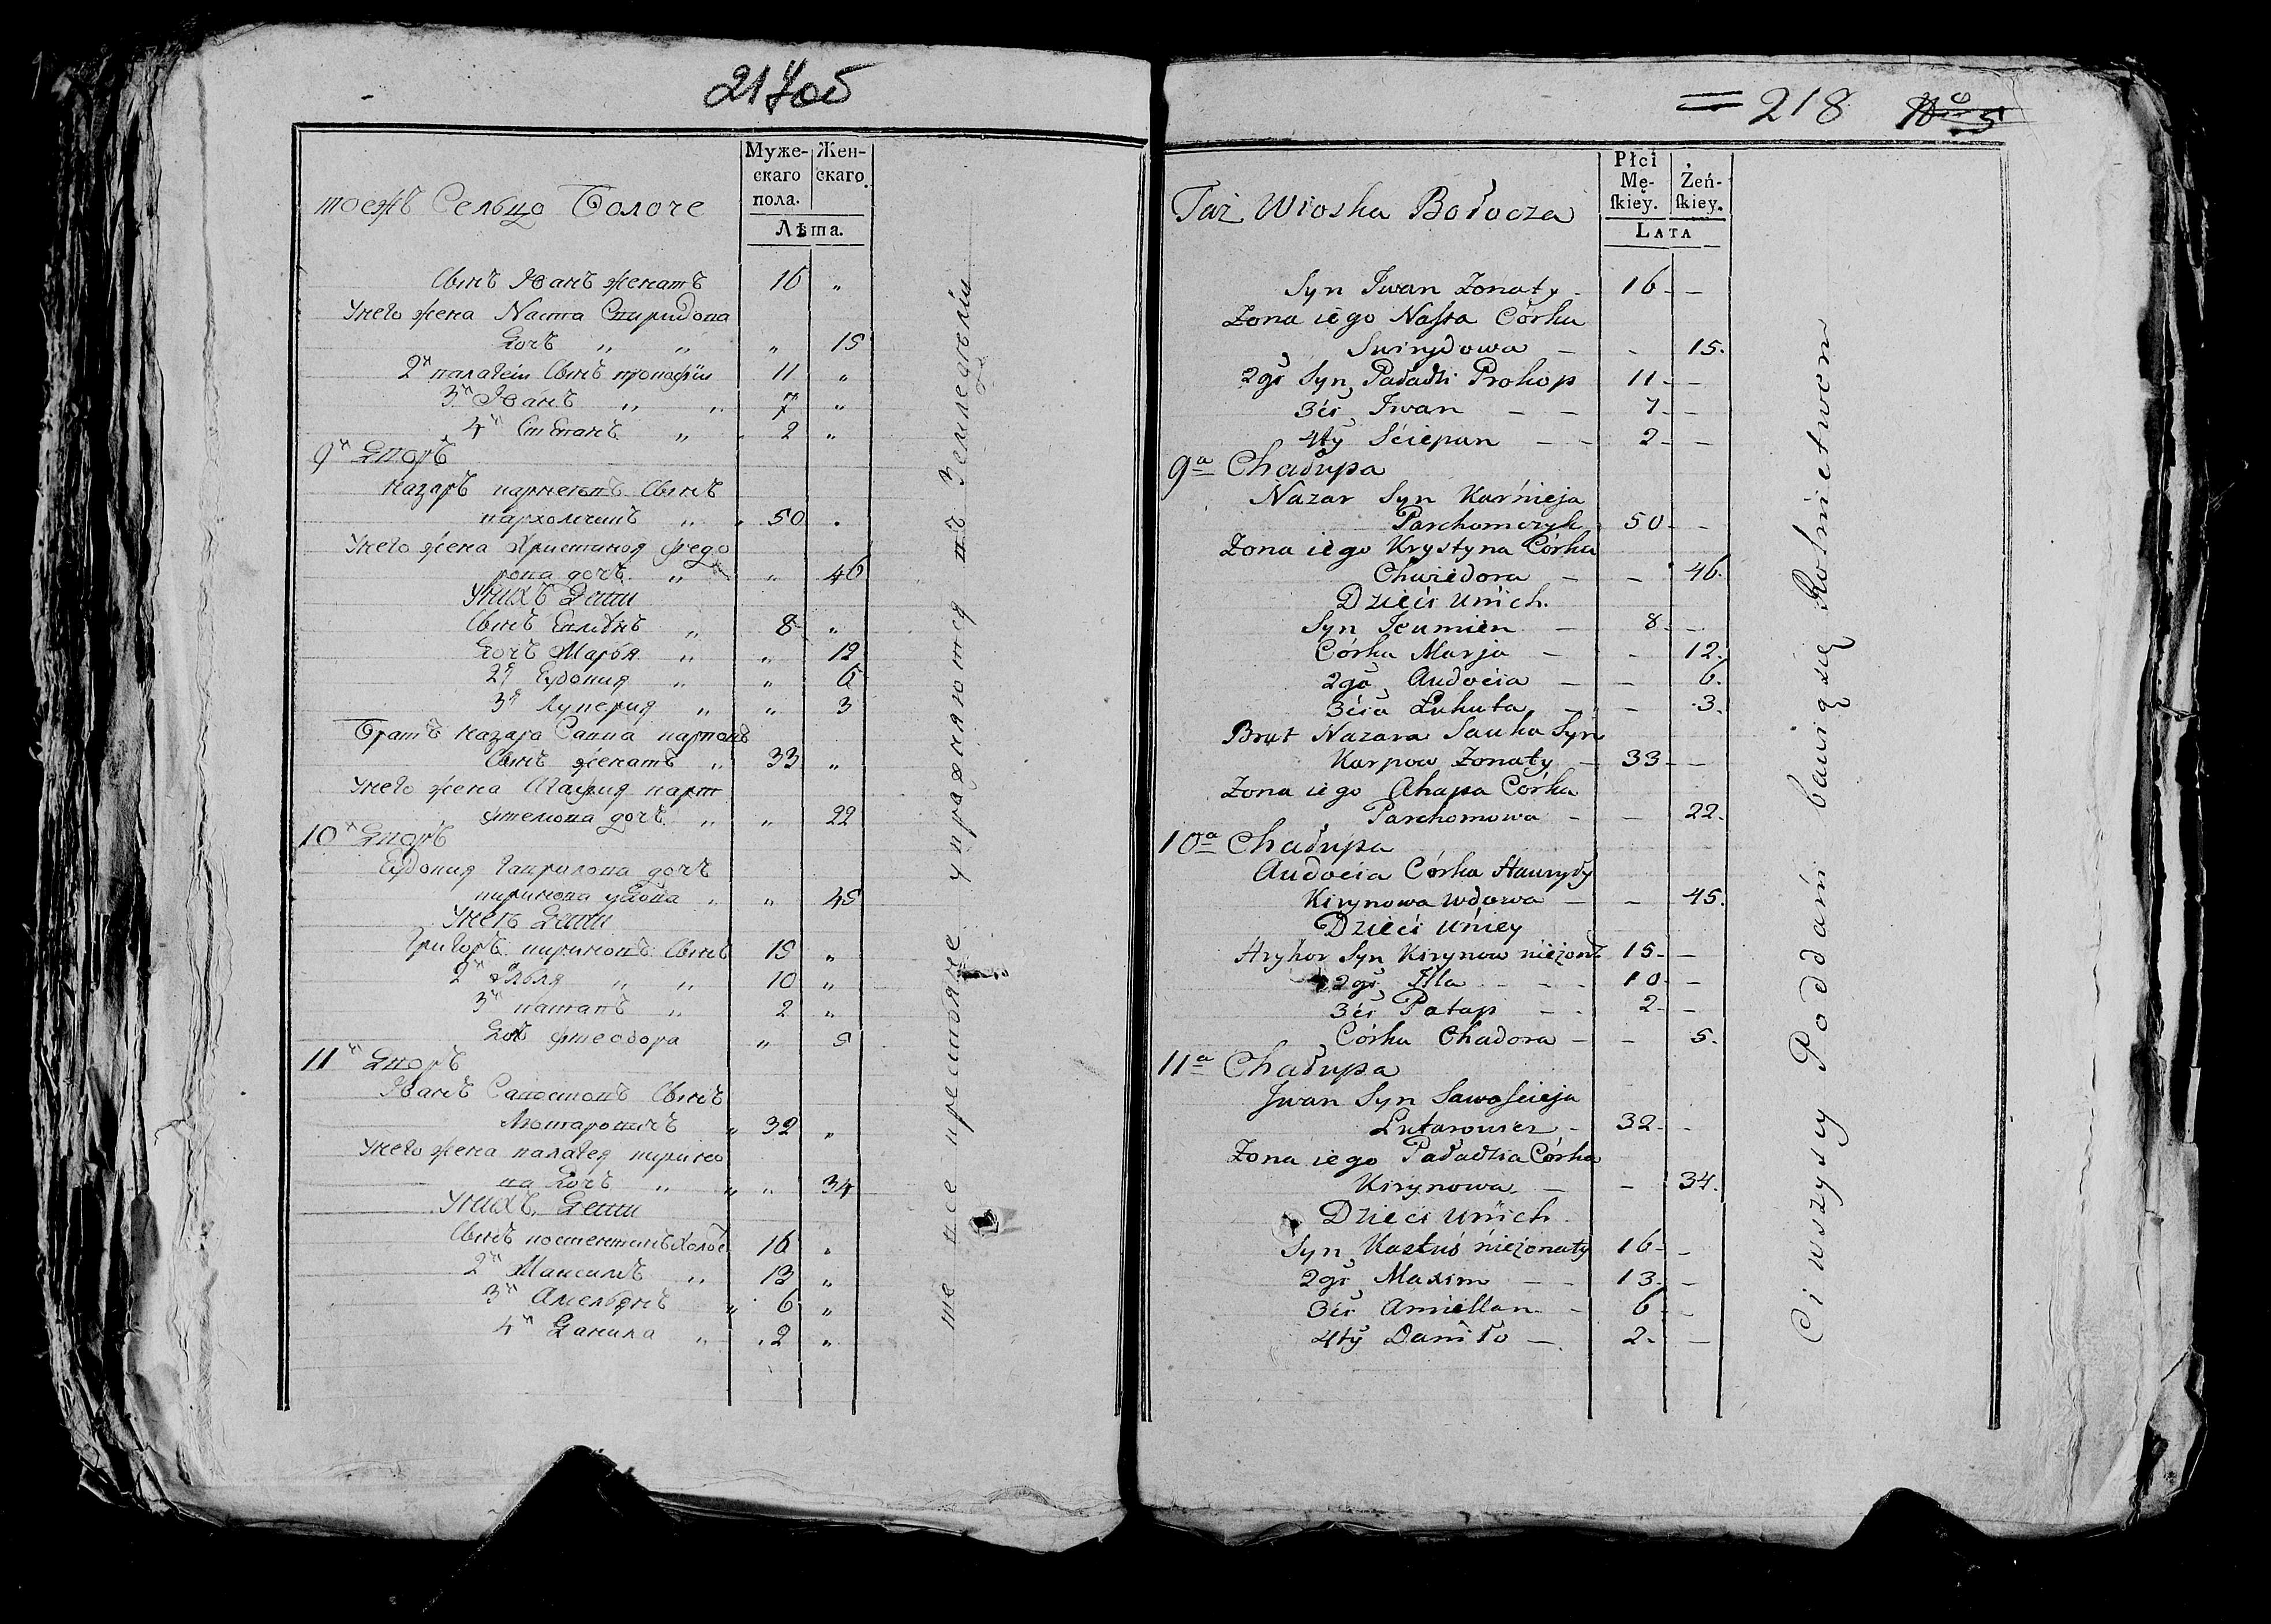 217об
Муже- Жен-
скаго скаго.
пола.
Лѣта.
тоежъ Сельцо Болоче
Сынъ Иванъ женатъ 16 "
Унего жена Наста Спиридона
Дочь " " " 15
2й палагеiи Сынъ прокофiи 11 "
3й Иванъ " " 7 "
4й Степанъ " 2 "
9й Дворъ
Назаръ Сынъ
пархомчикъ " 50 "
Унего жена Христиноя Федо
рова дочь " " 46
Унихъ Дети
Сынъ " 8 "
Дочь Марья " " 12
2я Еудокия " " 6
3я Лукерия " " 3
Братъ назара Савка карповъ
Сынъ женатъ " 33 "
Унего жена Агафия
дочь " " 22
10й Дворъ
Еудокия Гаврилова дочь
киринова удова " " 45
Унеѣ Дети
Григоръ кириновъ Сынъ 15 "
2й Илья " " 10 "
3й патапъ " 2 "
Дочь фтеодора " 5
11й Дворъ
Иванъ Савостовъ Сынъ
Лютаровичъ " 32 "
Унего жена палагея кирино
ва Дочь " " " 34
Унихъ Дети
Сынъ костентинъ холос 16 "
2й Максимъ " 13 "
3й Амельянъ " 6 "
4й Данила " 2 "
те все крестьяне упражняются въ Земледелiи
= 218 No 5
Płci
Mę- Żeń-
skiey. skiey.
LATA
Taż Wioska Bołocza
Syn Iwan Żonaty - 16 - -
Żona iego Nasta Córka
Swirydowa - - 15.
2gi Syn Paładzi Prokop 11 - -
3ci Iwan - - 7 - -
4ty Ściepan - - 2 - -
9a Chałupa
Nazar Syn Karnieja
Parchomczyk 50 - -
Żona iego Krystyna Córka
Chwiedora - - 46.
Dzieci unich.
Syn Jeumien - 8 - -
Córka Marja - - 12.
2ga Audocia - - 6.
3cia Łukuta - - 3.
Brat Nazara Sauka Syn
Karpow Żonaty - 33 - -
Żona iego Ahapa Córka
Parchomowa - - 22.
10a Chałupa
Audocia Córka Hauryły
Kirynowa wdowa - - 45.
Dzieci uniey
Hryhor Syn Kirynow nieżont 15 - -
2gi Illa - - - 10 - -
3ci Patap - - 2 - -
Córka Chadora - - 5.
11a Chałupa
Iwan Syn Sawościeja
Lutarowicz - 32 - -
Żona iego Paładzia Córka
Kirynowa - - 34.
Dzieci unich.
Syn Kastuś nieżonaty 16 - -
2gi Maxim - - 13 - -
3ci Amiellan - 6 - -
4ty Daniło - 2 - -
Ci wszyscy Poddani bawią się Rolnictwem